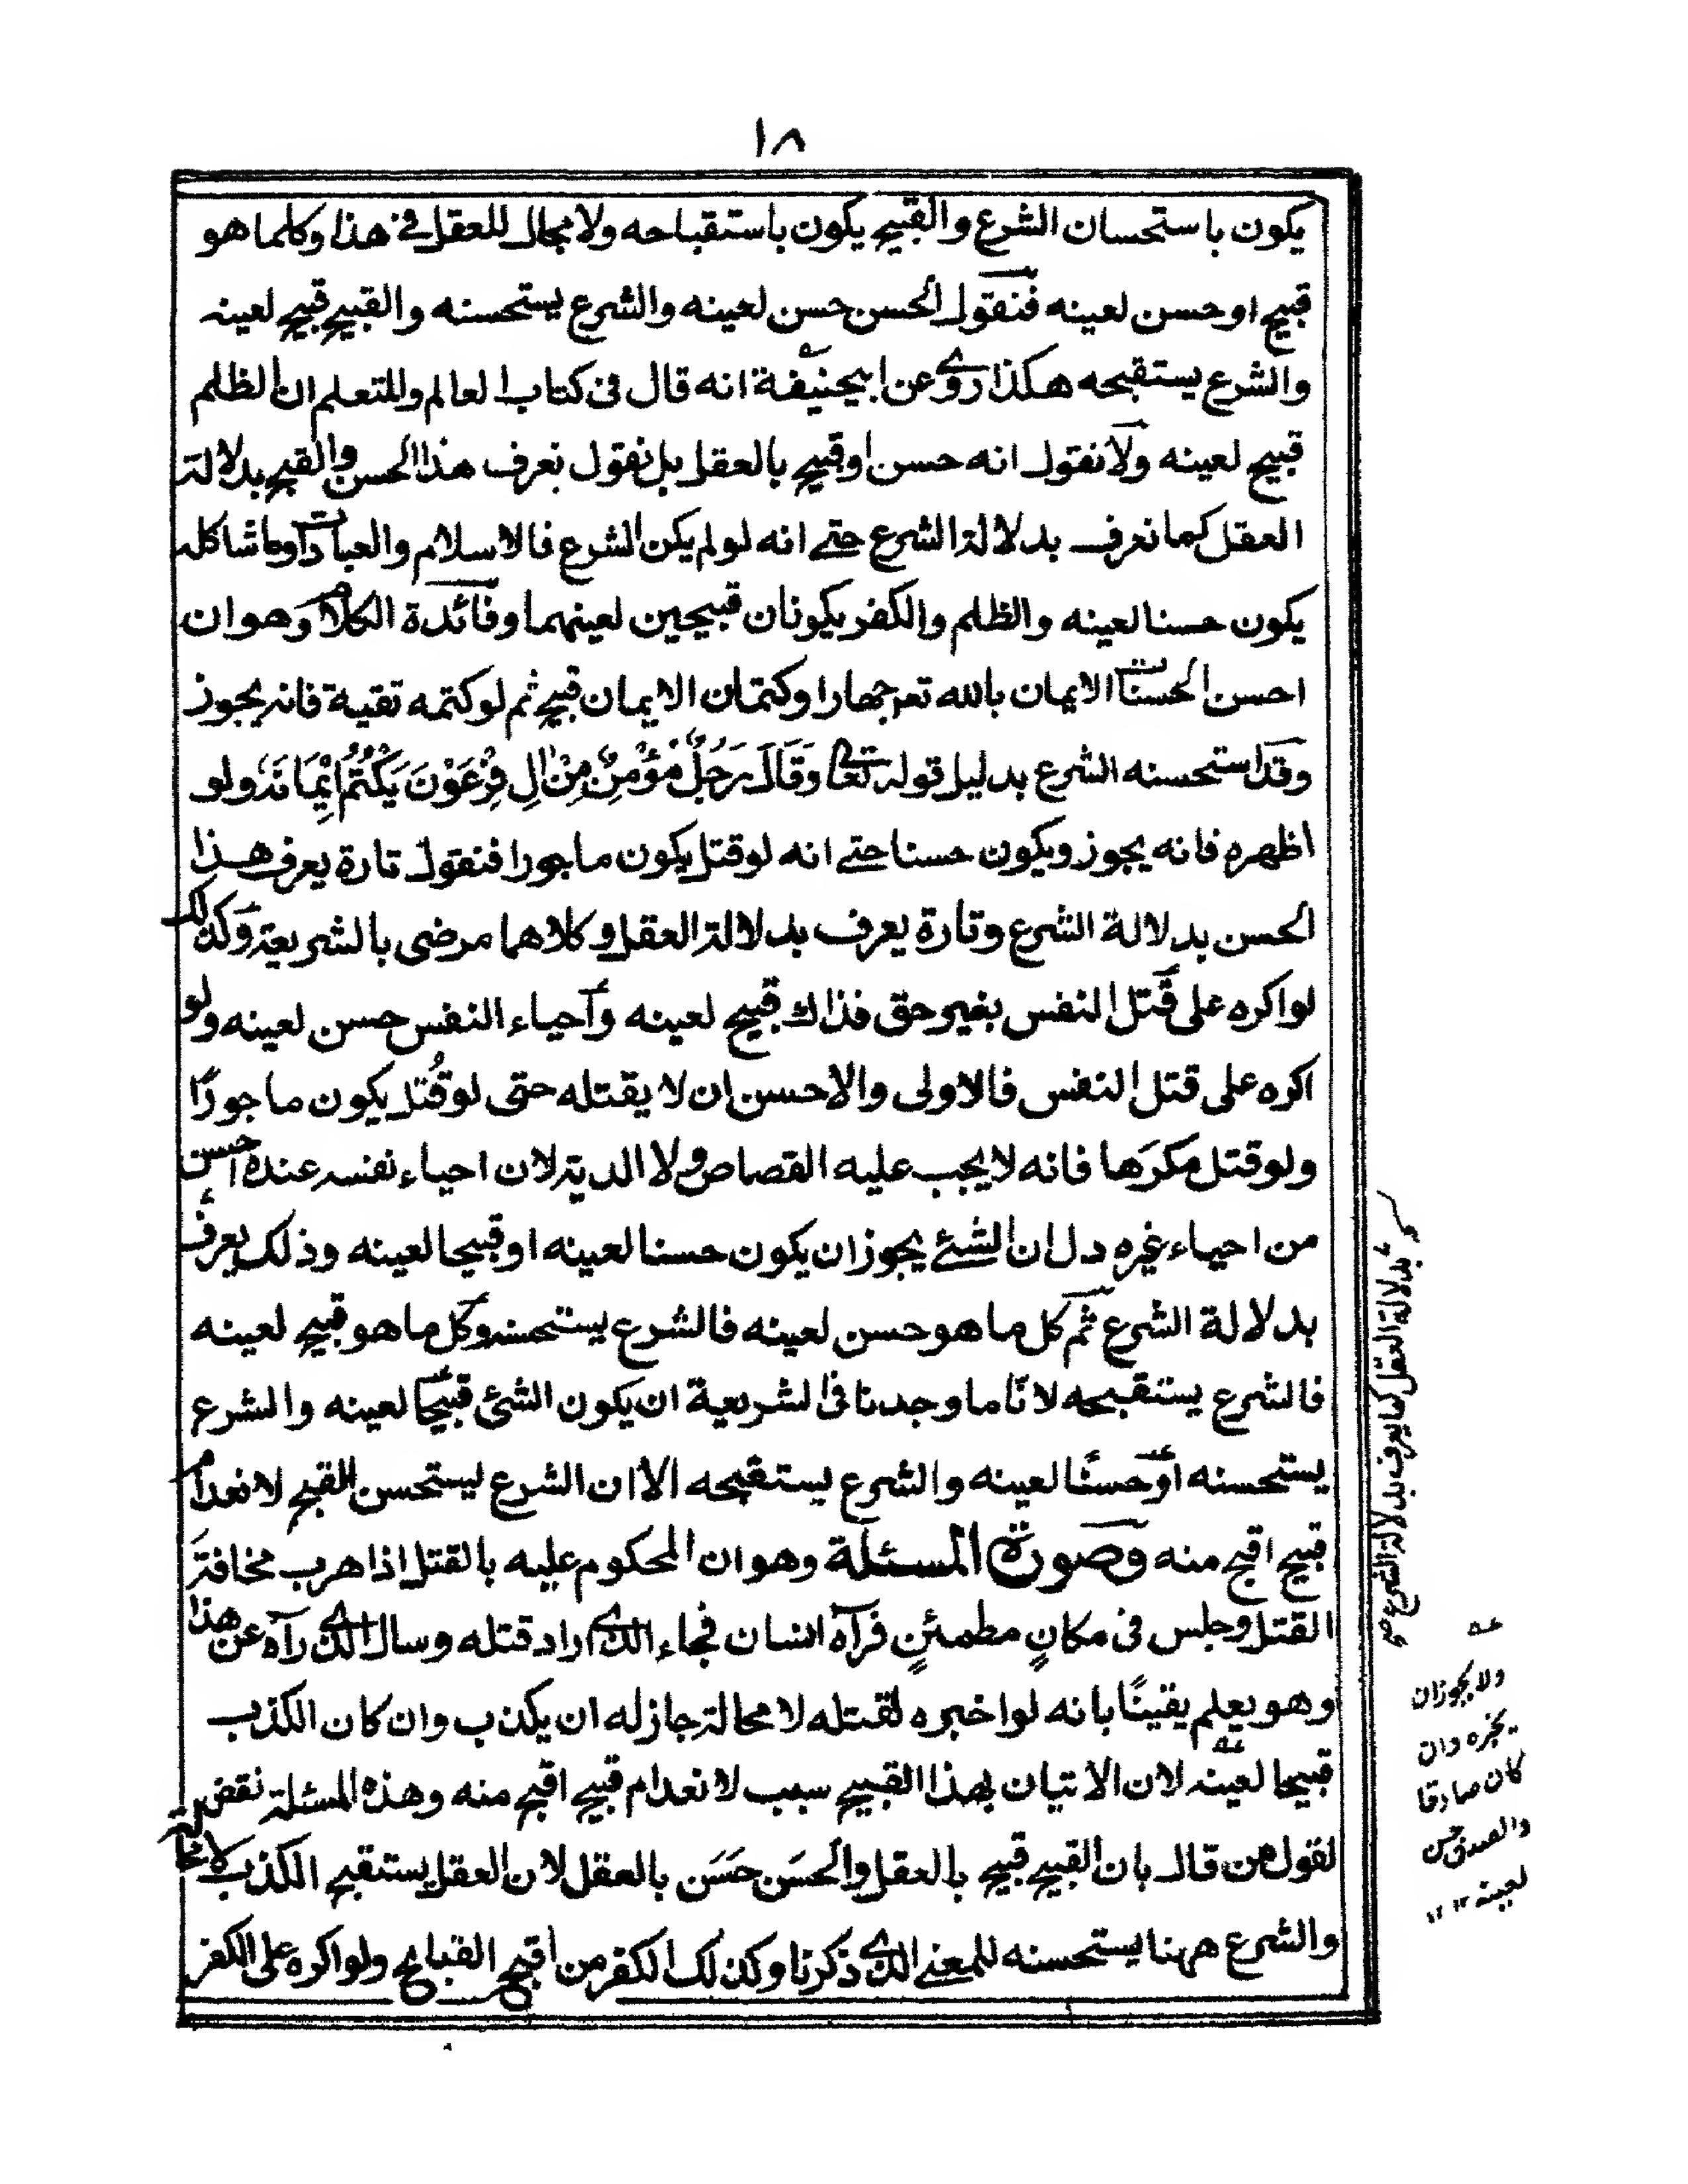 ١٨
يكون باستحسان الشرع والقبيح يكون باستقباحه ولا مجال للعقل في هذا وكلما هو
قبيح او حسن لعينه فنقول الحسن حسن لعينه والشرع يستحسنه والقبيح قبيح لعينه
والشرع يستقبحه هكذا روي عن ابيحنيفة انه قال في كتاب العالم والمتعلم ان الظلم
قبيح لعينه ولا نقول انه حسن او قبيح بالعقل بل نقول نعرف هذا الحسن والقبح بدلالة
العقل كما نعرف بدلالة الشرع حتى انه لو لم يكن الشرع فالاسلام والعبادات وما شاكله
يكون حسنا لعينه والظلم والكفر يكونان قبيحين لعينهما وفائدة الكلام وهو ان
احسن الحسنات الايمان بالله تعر جهارا وكتمان الايمان قبيح ثم لو كتمه تقية فانه يجوز
وقد استحسنه الشرع بدليل قوله تعالى وَقَالَ رَجُلٌ مُؤْمِنٌ مِنْ اٰلِ فِرْعَوْنَ يَكْتُمُ اِيْمَانَهٗ ولو
اظهره فانه يجوز ويكون حسنا حتى انه لو قتل يكون ماجورا فنقول تارة يعرف هذا
الحسن بدلالة الشرع وتارة يعرف بدلالة العقل وكلاهما مرضى بالشريعة وكذلك
لو اكره على قتل النفس بغير حق فذاك قبيح لعينه وآحياء النفس حسن لعينه ولو
اكره على قتل النفس فالاولى والاحسن ان لا يقتله حتى لو قُتل يكون ماجورًا
ولو قتل مكرَها فانه لا يجب عليه القصاص ولا الدية لان احياء نفسه عنده احسن
من احياء غيره دل ان الشئ يجوز ان يكون حسنا لعينه او قبيحا لعينه وذلك يعرف
بدلالة الشرع ثم كل ما هو حسن لعينه فالشرع يستحسنه وكل ما هو قبيح لعينه
فالشرع يستقبحه لانّا ما وجدنا فى الشريعة ان يكون الشئ قبيحًا لعينه والشرع
يستحسنه او حسنًا لعينه والشرع يستقبحه الا ان الشرع يستحسن القبيح لانعدام
قبيح اقبح منه وصورة المسئلة وهو ان المحكوم عليه بالقتل اذا هرب مخافةَ
القتل وجلس فى مكانٍ مطمئنٍ فرآه انسان فجاء الذي اراد قتله وسال الذي رآه عن هذا
وهو يعلم يقينًا بانه لو اخبره لقتله لا محالة جاز له ان يكذب وان كان الكذب
قبيحا لعينه لان الاتيان بهذا القبيح سبب لانعدام قبيح اقبح منه وهذه المسئلة نقض
لقول من قال بان القبيح قبيح بالعقل والحسَن حسَن بالعقل لان العقل يستقبح الكذب لا محالة
والشرع ههنا يستحسنه للمعنى الذي ذكرنا وكذلك الكفر من اقبح القبايح ولو اكره على الكفر
بدلالة العقل كما يعرف بدلالة الشرع صح
عه
ولا يجوز ان
يخبره وان
كان صادقا
والصدق حسن
لعينه ١٢ ١٢